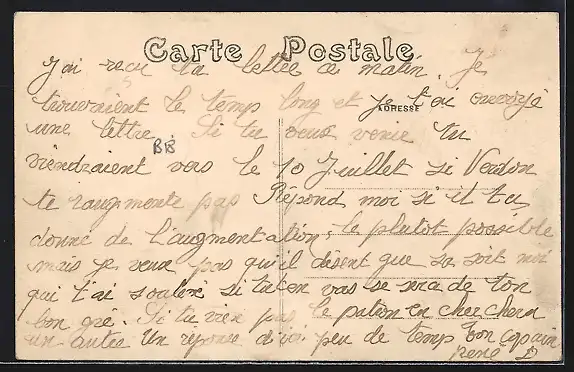 Carte Postale
J'ai recu ta lettre ce matin. Je
trouvaient le temps long et je t'ai envoyé
ADRESSE
une lettre. Si tu veux venir tu
BB
viendraient vers le 10 Juillet si Verdon
te raugmente pas Répond moi si il ta
donné de l'augmentation, le plutot possible
mais je veux pas qu'il disent que sa soit moi
qui t'ai si ton vas se sera de ton
bon gré. Si tu vien pas le patron en cherchera
un autre Un reponse d'ici peu de temps ton copain
rene D